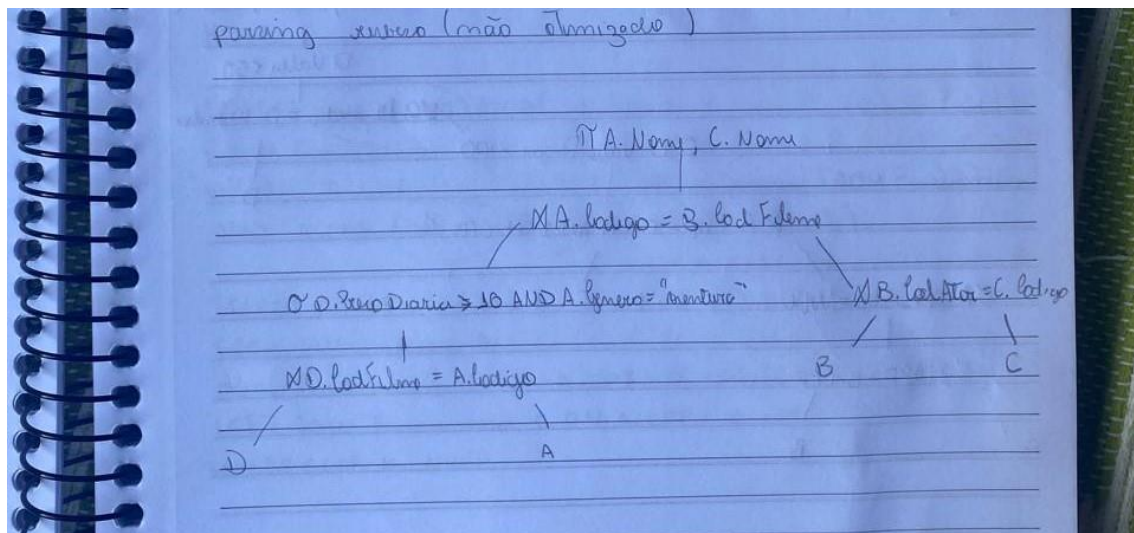 parsing (não otimizado)
π A. Nome, C. Nome
⋈ A. Codigo = B. Cod Filme
σ D. Preço Diaria > 10 AND A. Genero = "Aventura"
⋈ B. Cod Ator = C. Codigo
B C
⋈ D. Cod Filme = A. Codigo
D A